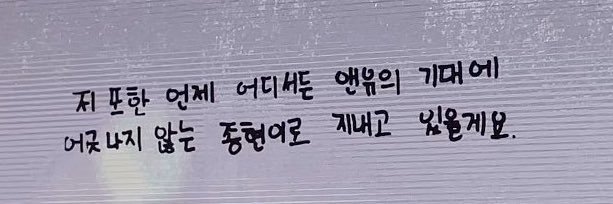 저 또한 언제 어디서든 앤유의 기대에
어긋나지 않는 종현이로 지내고 있을게요.